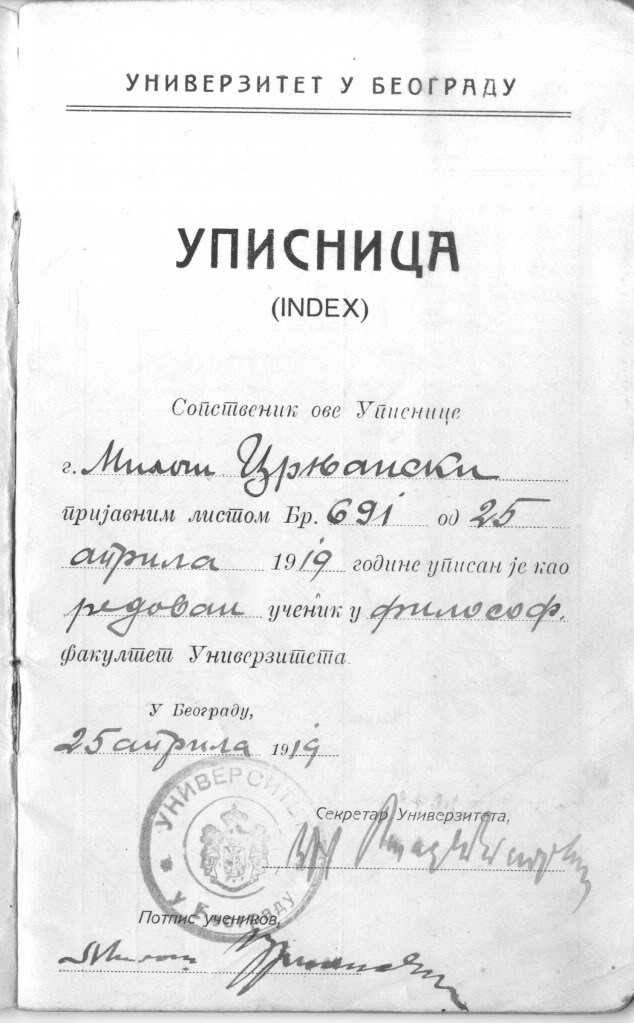 УНИВЕРЗИТЕТ У БЕОГРАДУ
УПИСНИЦА
(INDEX)
Сопственик ове Уписнице
г. Милош Црњански
пријавним листом Бр. 691 од 25
априла 1919 године уписан је као
редован ученик у философ.
факултет Универзитета.
У Београду,
25 априла 1919
УНИВЕРСИТЕТ
У БЕОГРАДУ
Секретар Универзитета,
Потпис учеников,
Милош Црњански